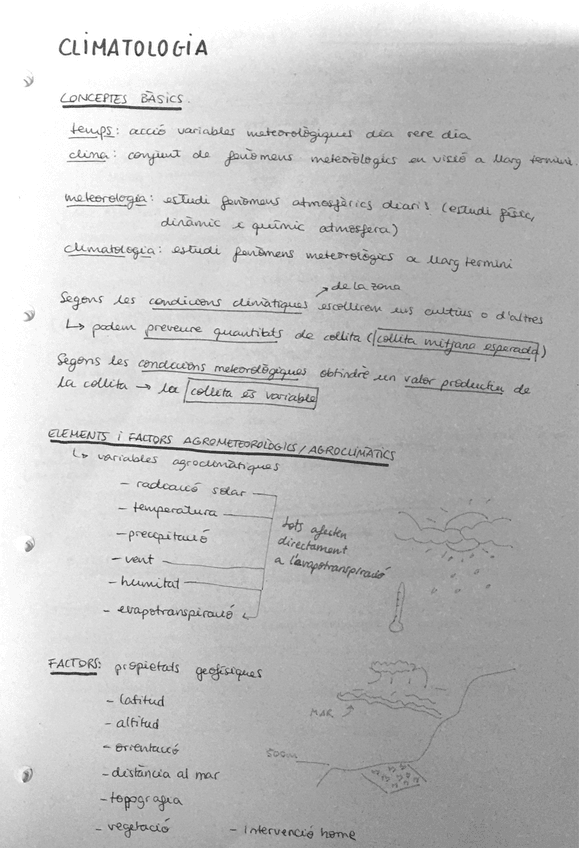 CLIMATOLOGIA
CONCEPTES BÀSICS.
temps: acció variables meteorològiques dia rere dia
clima: conjunt de fenòmens meteorològics en visió a llarg termini.
meteorologia: estudi fenòmens atmosfèrics diaris (estudi físic,
dinàmic i químic atmosfera)
climatologia: estudi fenòmens meteorològics a llarg termini
de la zona
Segons les condicions climàtiques escollirem uns cultius o d'altres
↳ podem preveure quantitats de collita (collita mitjana esperada)
Segons les condicions meteorològiques obtindré un valor productiu de
la collita → la collita és variable
ELEMENTS i FACTORS AGROMETEOROLÒGICS/AGROCLIMÀTICS
↳ variables agroclimàtiques
- radiació solar
- temperatura
- precipitació
- vent
- humitat
- evapotranspiració
tots afecten
directament
a l'evapotranspiració
FACTORS: propietats geofísiques
- latitud
- altitud
- orientació
- distància al mar
- topografia
- vegetació - intervenció home
MAR
500m